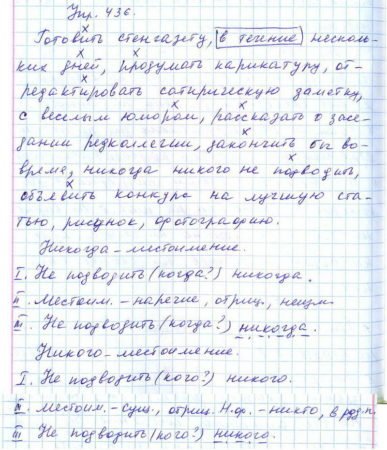 Упр. 436.
Готовить стенгазету, в течение несколь-
ких дней, продумать карикатуру, от-
редактировать сатирическую заметку,
с веселым юмором, рассказать о засе-
дании редколлегии, закончить бы во-
время, никогда никого не подводить,
объявить конкурс на лучшую ста-
тью, рисунок, фотографию.
Никогда - местоимение.
I. Не подводить (когда?) никогда.
II. Местоим. - наречие, отриц., неизм.
III. Не подводить (когда?) никогда.
Никого - местоимение.
I. Не подводить (кого?) никого.
II. Местоим. - сущ., отриц. Н.ф. - никто, в род.п.
III. Не подводить (кого?) никого.